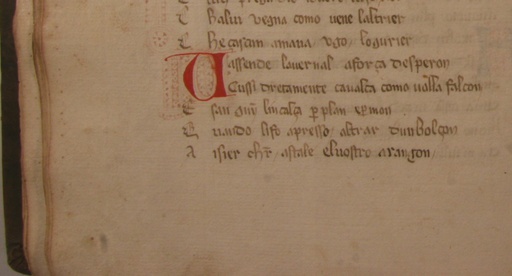 E balur vegna como uene laltrier
E hecascun amaua ugo logurier
Uassende louernal aforça desperon
Cussi dretamente caualca como uolla falcon
E san guir lincalça ꝑ plan eꝑ mon
E uando lifo apresso altrar dun bolçon
A isier chr̄ astale eluostro arangon